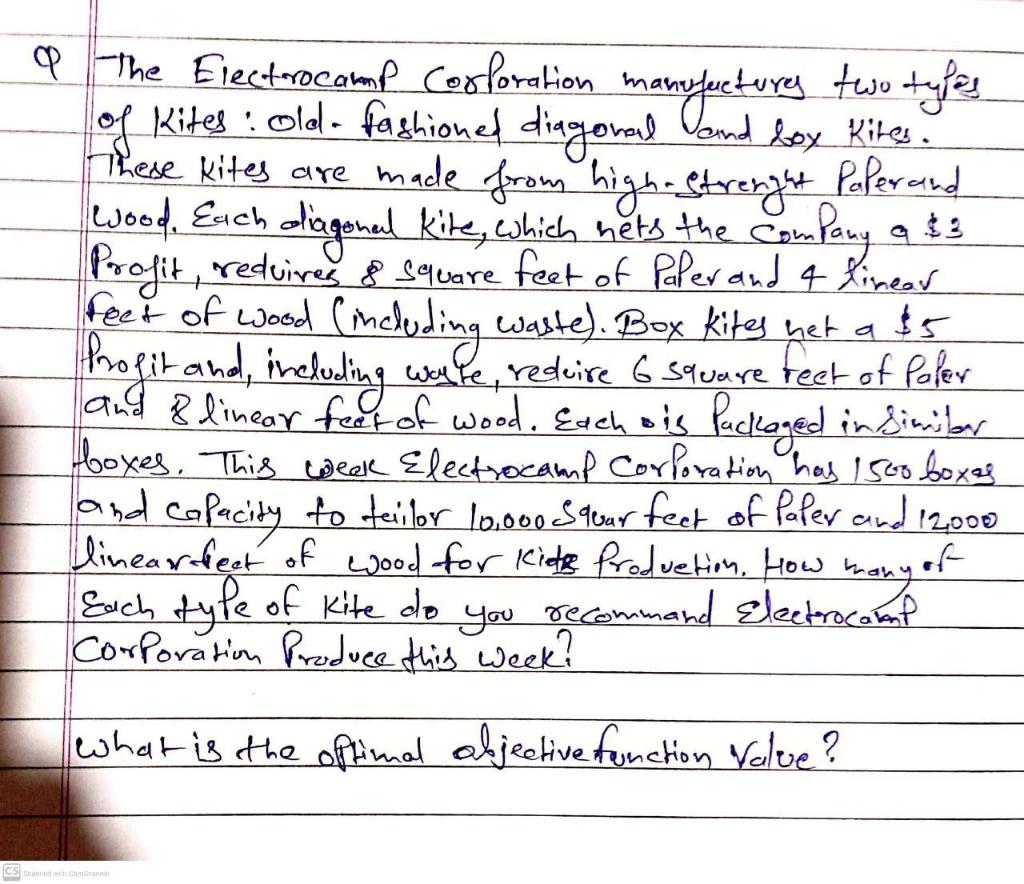 Q The Electrocamp Corporation manufactures two types
of Kites : old- fashioned diagonal and box Kites.
These Kites are made from high-strenght Paper and
wood. Each diagonal Kite, which nets the company a $3
Profit, reduires 8 square feet of Paper and 4 linear
feet of wood (including waste). Box Kites net a $5
Profit and, including waste, reduire 6 square feet of Paper
and 8 linear feet of wood. Each is Packaged in Similar
boxes. This week Electrocamp Corporation has 1500 boxes
and capacity to tailor 10,000 Squar feet of Paper and 12,000
linear feet of wood for Kite Production. How many of
Each type of Kite do you recommand Electrocamp
Corporation Produce this week?
what is the optimal objective function Value?
CS Scanned with CamScanner